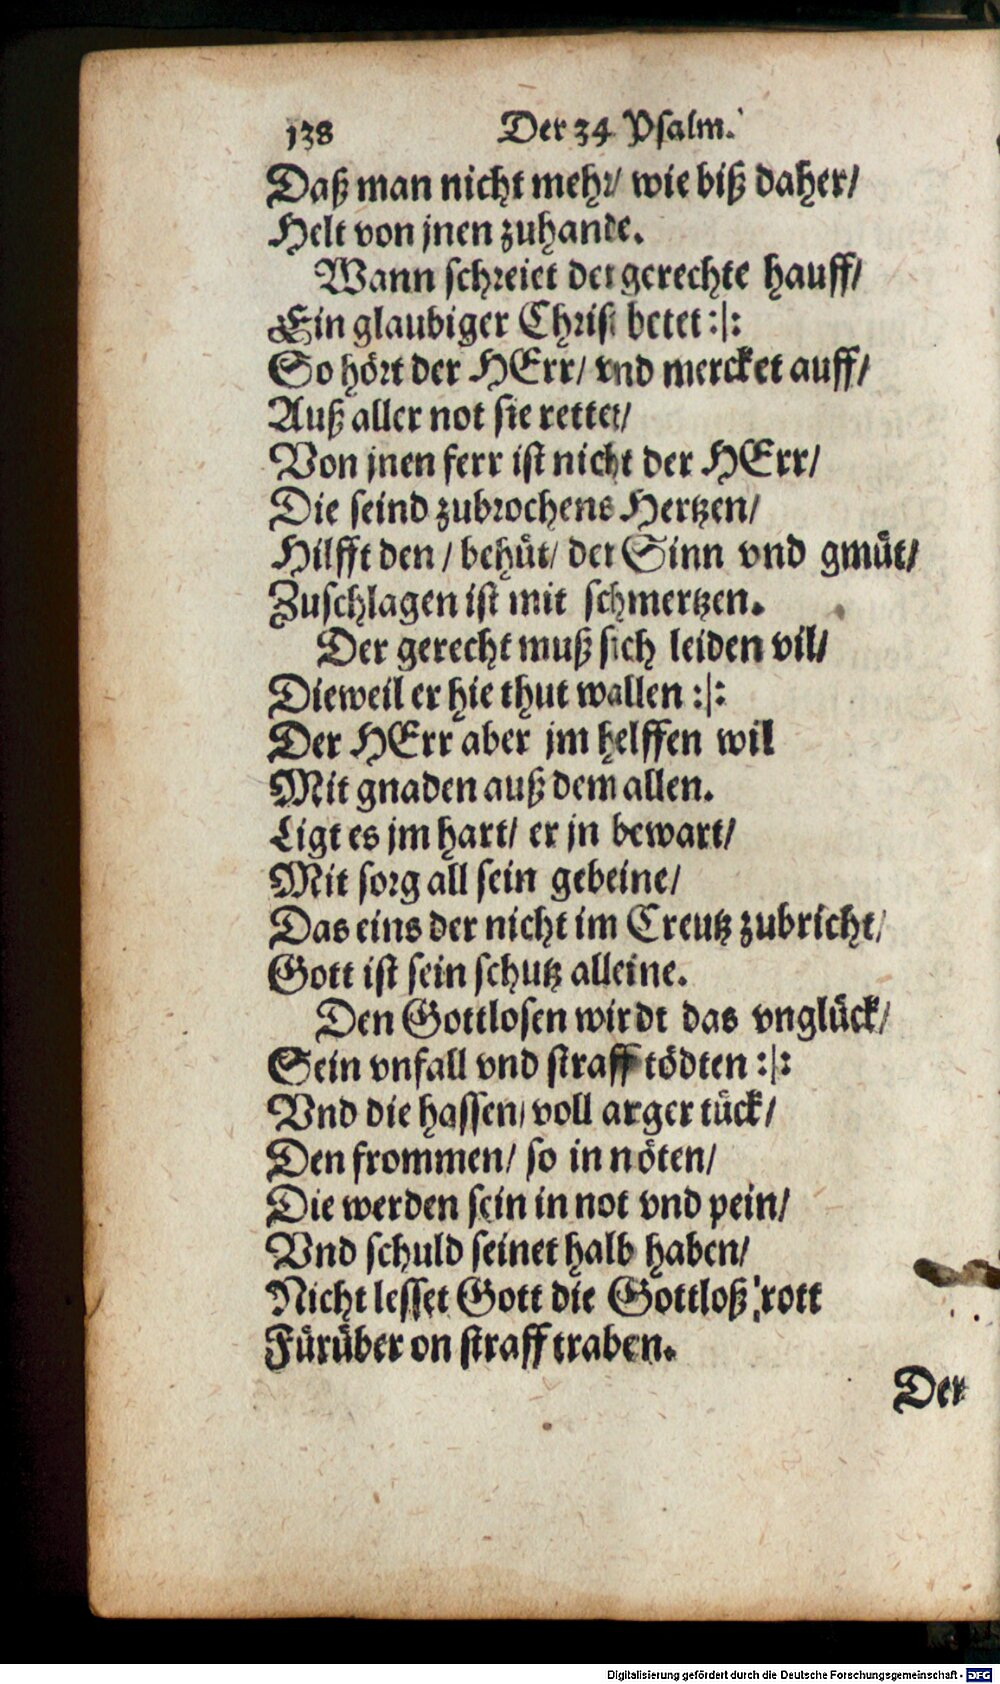 138 Der 34 Psalm.
Daß man nicht mehr/ wie biß daher/
Helt von jnen zuhande.
Wann schreiet der gerechte hauff/
Ein glaubiger Christ betet :|:
So hört der HErr/ vnd mercket auff/
Auß aller not sie rettet/
Von jnen ferr ist nicht der HErr/
Die seind zubrochens Hertzen/
Hilfft den / behüt/ der Sinn vnd gmüt/
Zuschlagen ist mit schmertzen.
Der gerecht muß sich leiden vil/
Dieweil er hie thut wallen :|:
Der HErr aber jm helffen wil
Mit gnaden auß dem allen.
Ligt es jm hart/ er jn bewart/
Mit sorg all sein gebeine/
Das eins der nicht im Creutz zubricht/
Gott ist sein schutz alleine.
Den Gottlosen wirdt das vnglück/
Sein vnfall vnd straff tödten :|:
Vnd die hassen/ voll arger tück/
Den frommen/ so in nöten/
Die werden sein in not vnd pein/
Vnd schuld seinet halb haben/
Nicht lesset Gott die Gottloß rott
Fürüber on straff traben.
Der
Digitalisierung gefördert durch die Deutsche Forschungsgemeinschaft - DFG